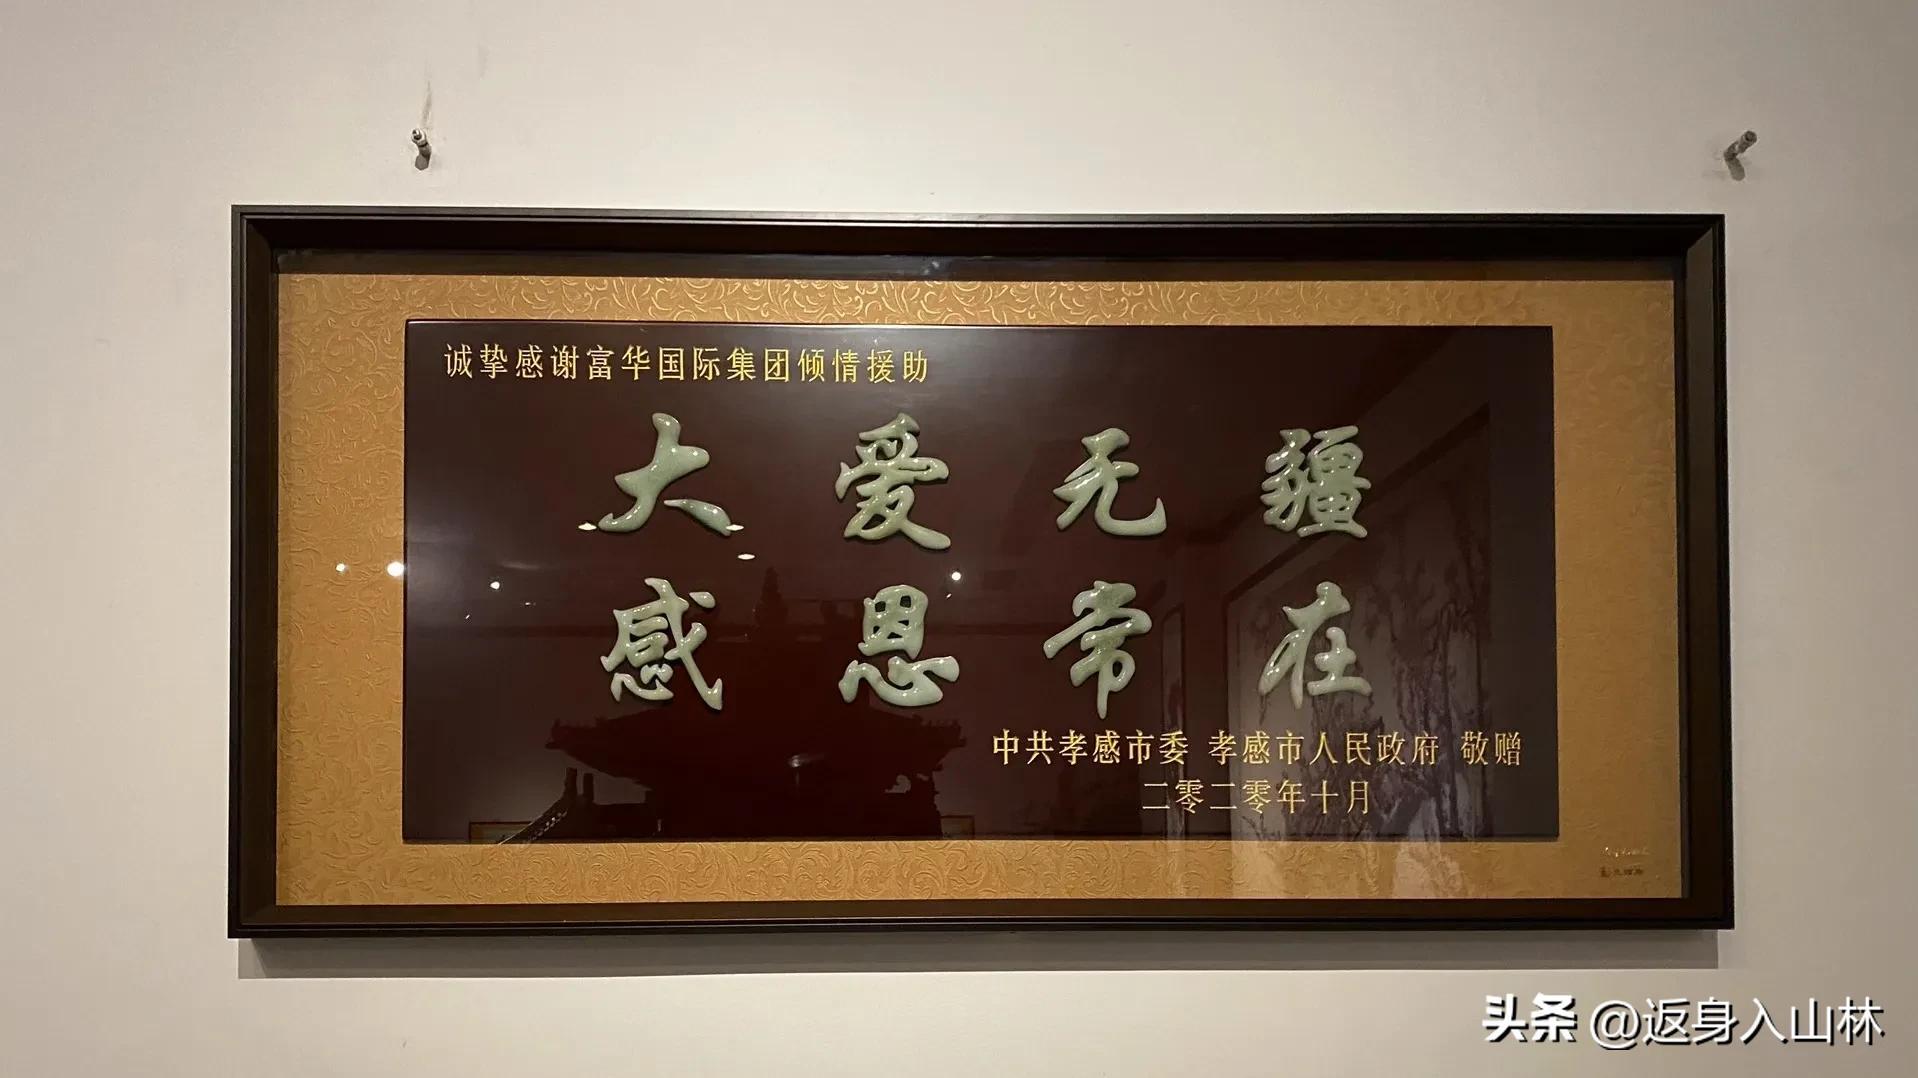 诚挚感谢富华国际集团倾情援助
大爱无疆
感恩常在
中共孝感市委 孝感市人民政府 敬赠
二零二零年十月
头条 @返身入山林